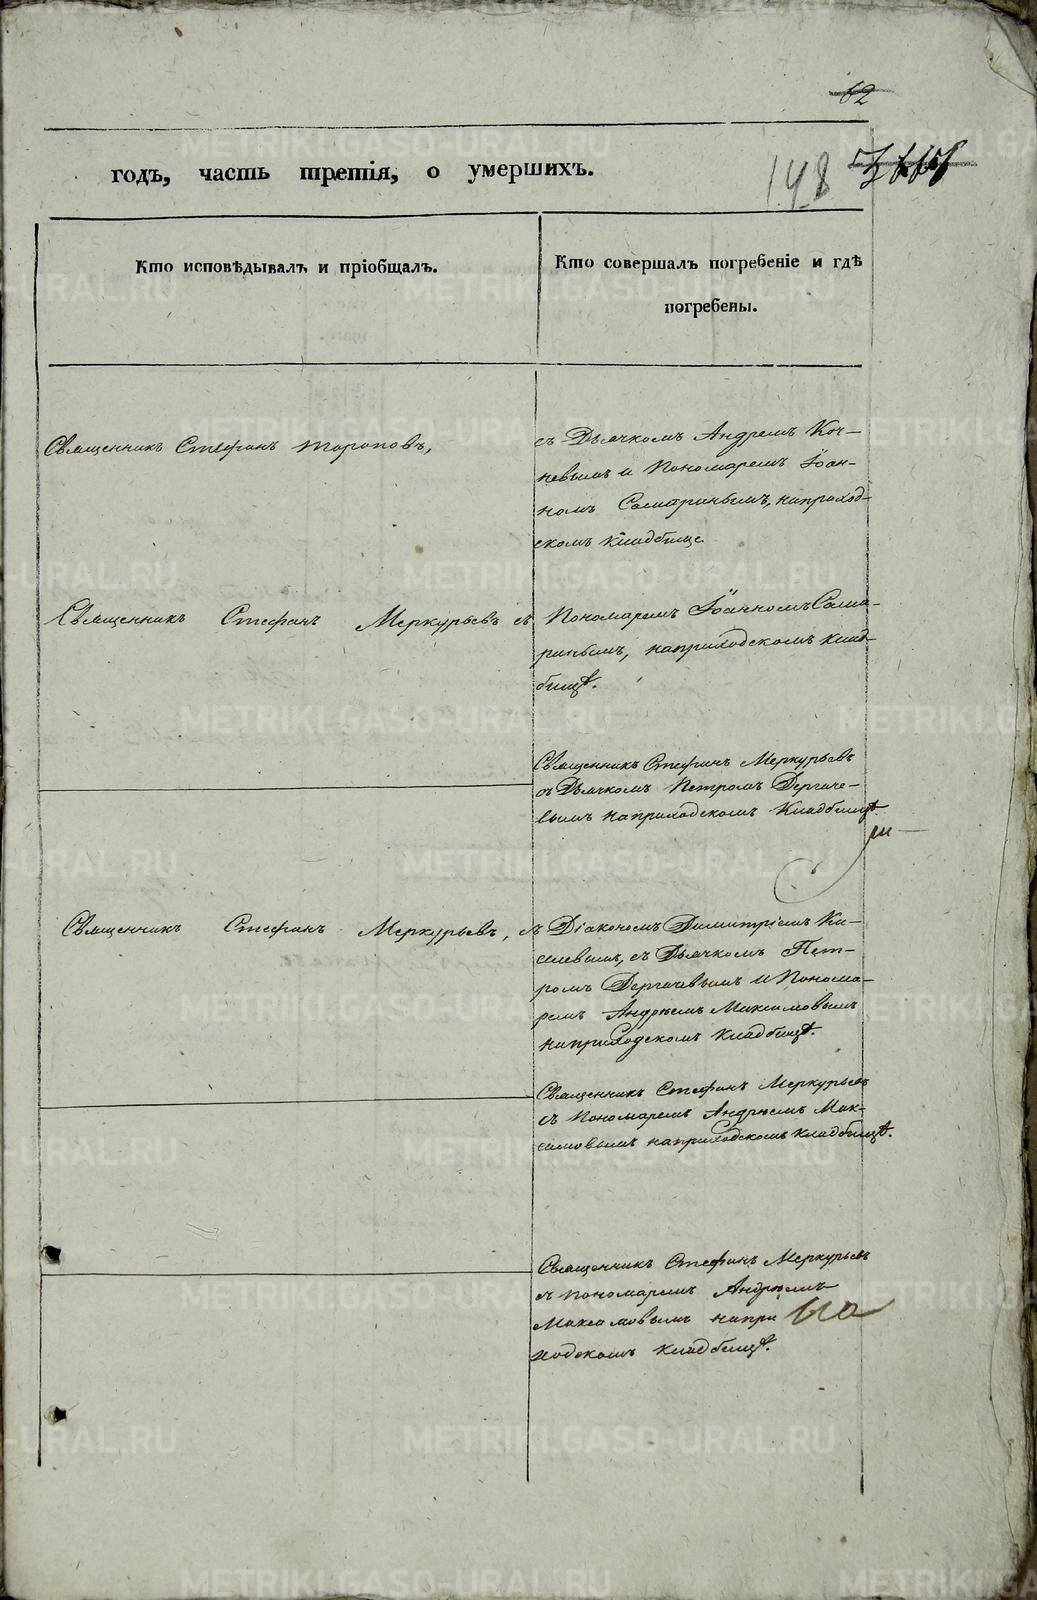 62
годъ, часть третія, о умершихъ.
148
Кто исповѣдывалъ и пріобщалъ.
Кто совершалъ погребеніе и гдѣ
погребены.
Священникъ Стефанъ Тороповъ,
съ Дьячкомъ Андреемъ Коч-
невымъ и Пономаремъ Іоан-
номъ Самаринымъ, наприход-
скомъ кладбище
Священникъ Стефанъ Меркурьевъ съ
Пономаремъ Іоанномъ Сама-
ринымъ, наприходскомъ клад-
бищѣ.
Священникъ Стефанъ Меркурьевъ
съ Дьячкомъ Петромъ Дергаче-
вымъ наприходскомъ Кладбищѣ.
Священникъ Стефанъ Меркурьевъ, съ
Діакономъ Димитріемъ Ки-
селевымъ, съ Дьячкомъ Пет-
ромъ Дергачевымъ и Понома-
ремъ Андреемъ Максимовымъ
наприходскомъ кладбищѣ.
Священникъ Стефанъ Меркурьевъ
съ Пономаремъ Андреемъ Мак-
симовымъ наприходскомъ кладбищѣ.
Священникъ Стефанъ Меркурьевъ
съ пономаремъ Андреемъ
Максимовымъ напри
ходскомъ кладбищѣ.
METRIKI.GASO-URAL.RU